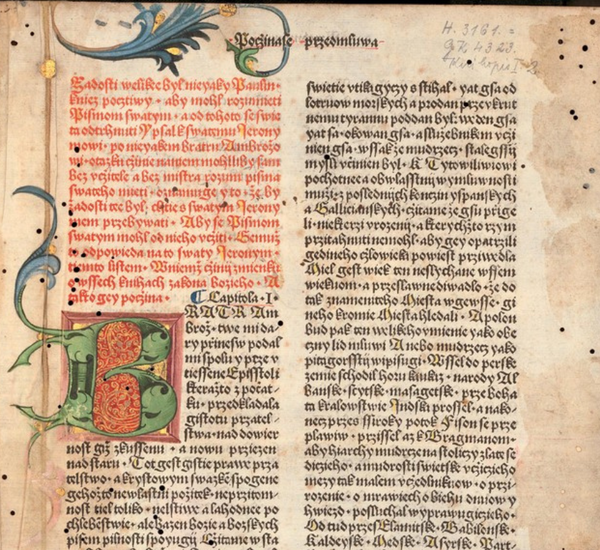 Počinase předmluwa
H. 3161. =
Žadosti welike byl nieyaky Paulin
kniez pocztiwy · aby mohl rozumieti
Pismom swatym · a od tohoto sě swie
ta odtrhnuti Y psal k swatemu Ierony
mowi · po nieyakem bratru Ambrožo
wi · otazku czinie nauiem mohliby sam
bez vczitele a bez mistra rozumi pisma
swateho mieti · oznamuge y to · že by
žadostiw byl, chtie s swatym Ierony
mem přebywati · Aby se Pismom
swatym mohl od nieho vcziti · Gemuž
to odpowieda na to swaty Ieronym ·
tiemto listem · W niemž czini zmienku
o wssech knihach zakona božieho · A
takto gey poczina ·
Capitola · I ·
BRATR Am
brož · twe mi da
ry přinesw podal
mi spolu y prze v
tiessene Episstoli
kteražto z počat
ku · przedkladala
gistotu przatel
stwa · nad dowier
nost giž zkussenu · a nowu przizen
nad staru · Tot gest gistie prawe prza
telstwo · a krystowym swazke spogene
gehožto ne wlastni požitek · neprzitom
nost tiel toliko · ne lstiwe a lahodne po
chlebenstwie · ale bazen božie a božskych
pisem pilnosti spoyugij Cžitame w sta
swietie vtikagyczy s stihal · yat gsa od
lotruow morskych a prodan · przevkrut
nemu tyrannu poddan byl: weden gsa
yat sa · okowan gsa · a služebnikem vczi
nien gsa · wssak že mudrzecz · stalegssij
mysli vczinien byl · K Tytowi liwiowi
pochotnee a obwlasstnij wymluwnosti
muži · z poslednych konczin yspanskych
a Gallicianskych · cžitame že gsu przige
li · niekterzi vrozenij · a kterychž to rzym
przitahnuti nemohl · aby gey opatrzili
gedineho cžlowieka powiest priwedla
Miel gest wiek ten neslychane wssem
wiekuom · a przeslawne diwadlo · že do
tak znameniteho Miesta wgewsse · gi
neho kromie Miesta hledali · Apolon
bud pak ten weliky w umenie yako obe
czny lid mluwi A nebo mudrzecz yako
pitagorsstij wipisugi · Wssel do perske
zemie schodil horu kaukaz · narody Al
banske · scytske · masagetske · prze boha
ta kralowstwie Indski prossel · a nako
necz przes ssiroky potok Fison se prze
plawiw · przissel az k Bragmanom ·
aby hiarchy mudrcze na stolici zlate se
diczieho · a mudrosti swietske vcziczieho
mezy tak malem vczedlnikuow · o przi
rozenie · o mrawiech o biehu dnuow y
hwiezd · posluchal wyprawugiczieho ·
Od tud przes Elamitske · Babilonsk ·
Kaldeyske · Medske · Asyrske · Part